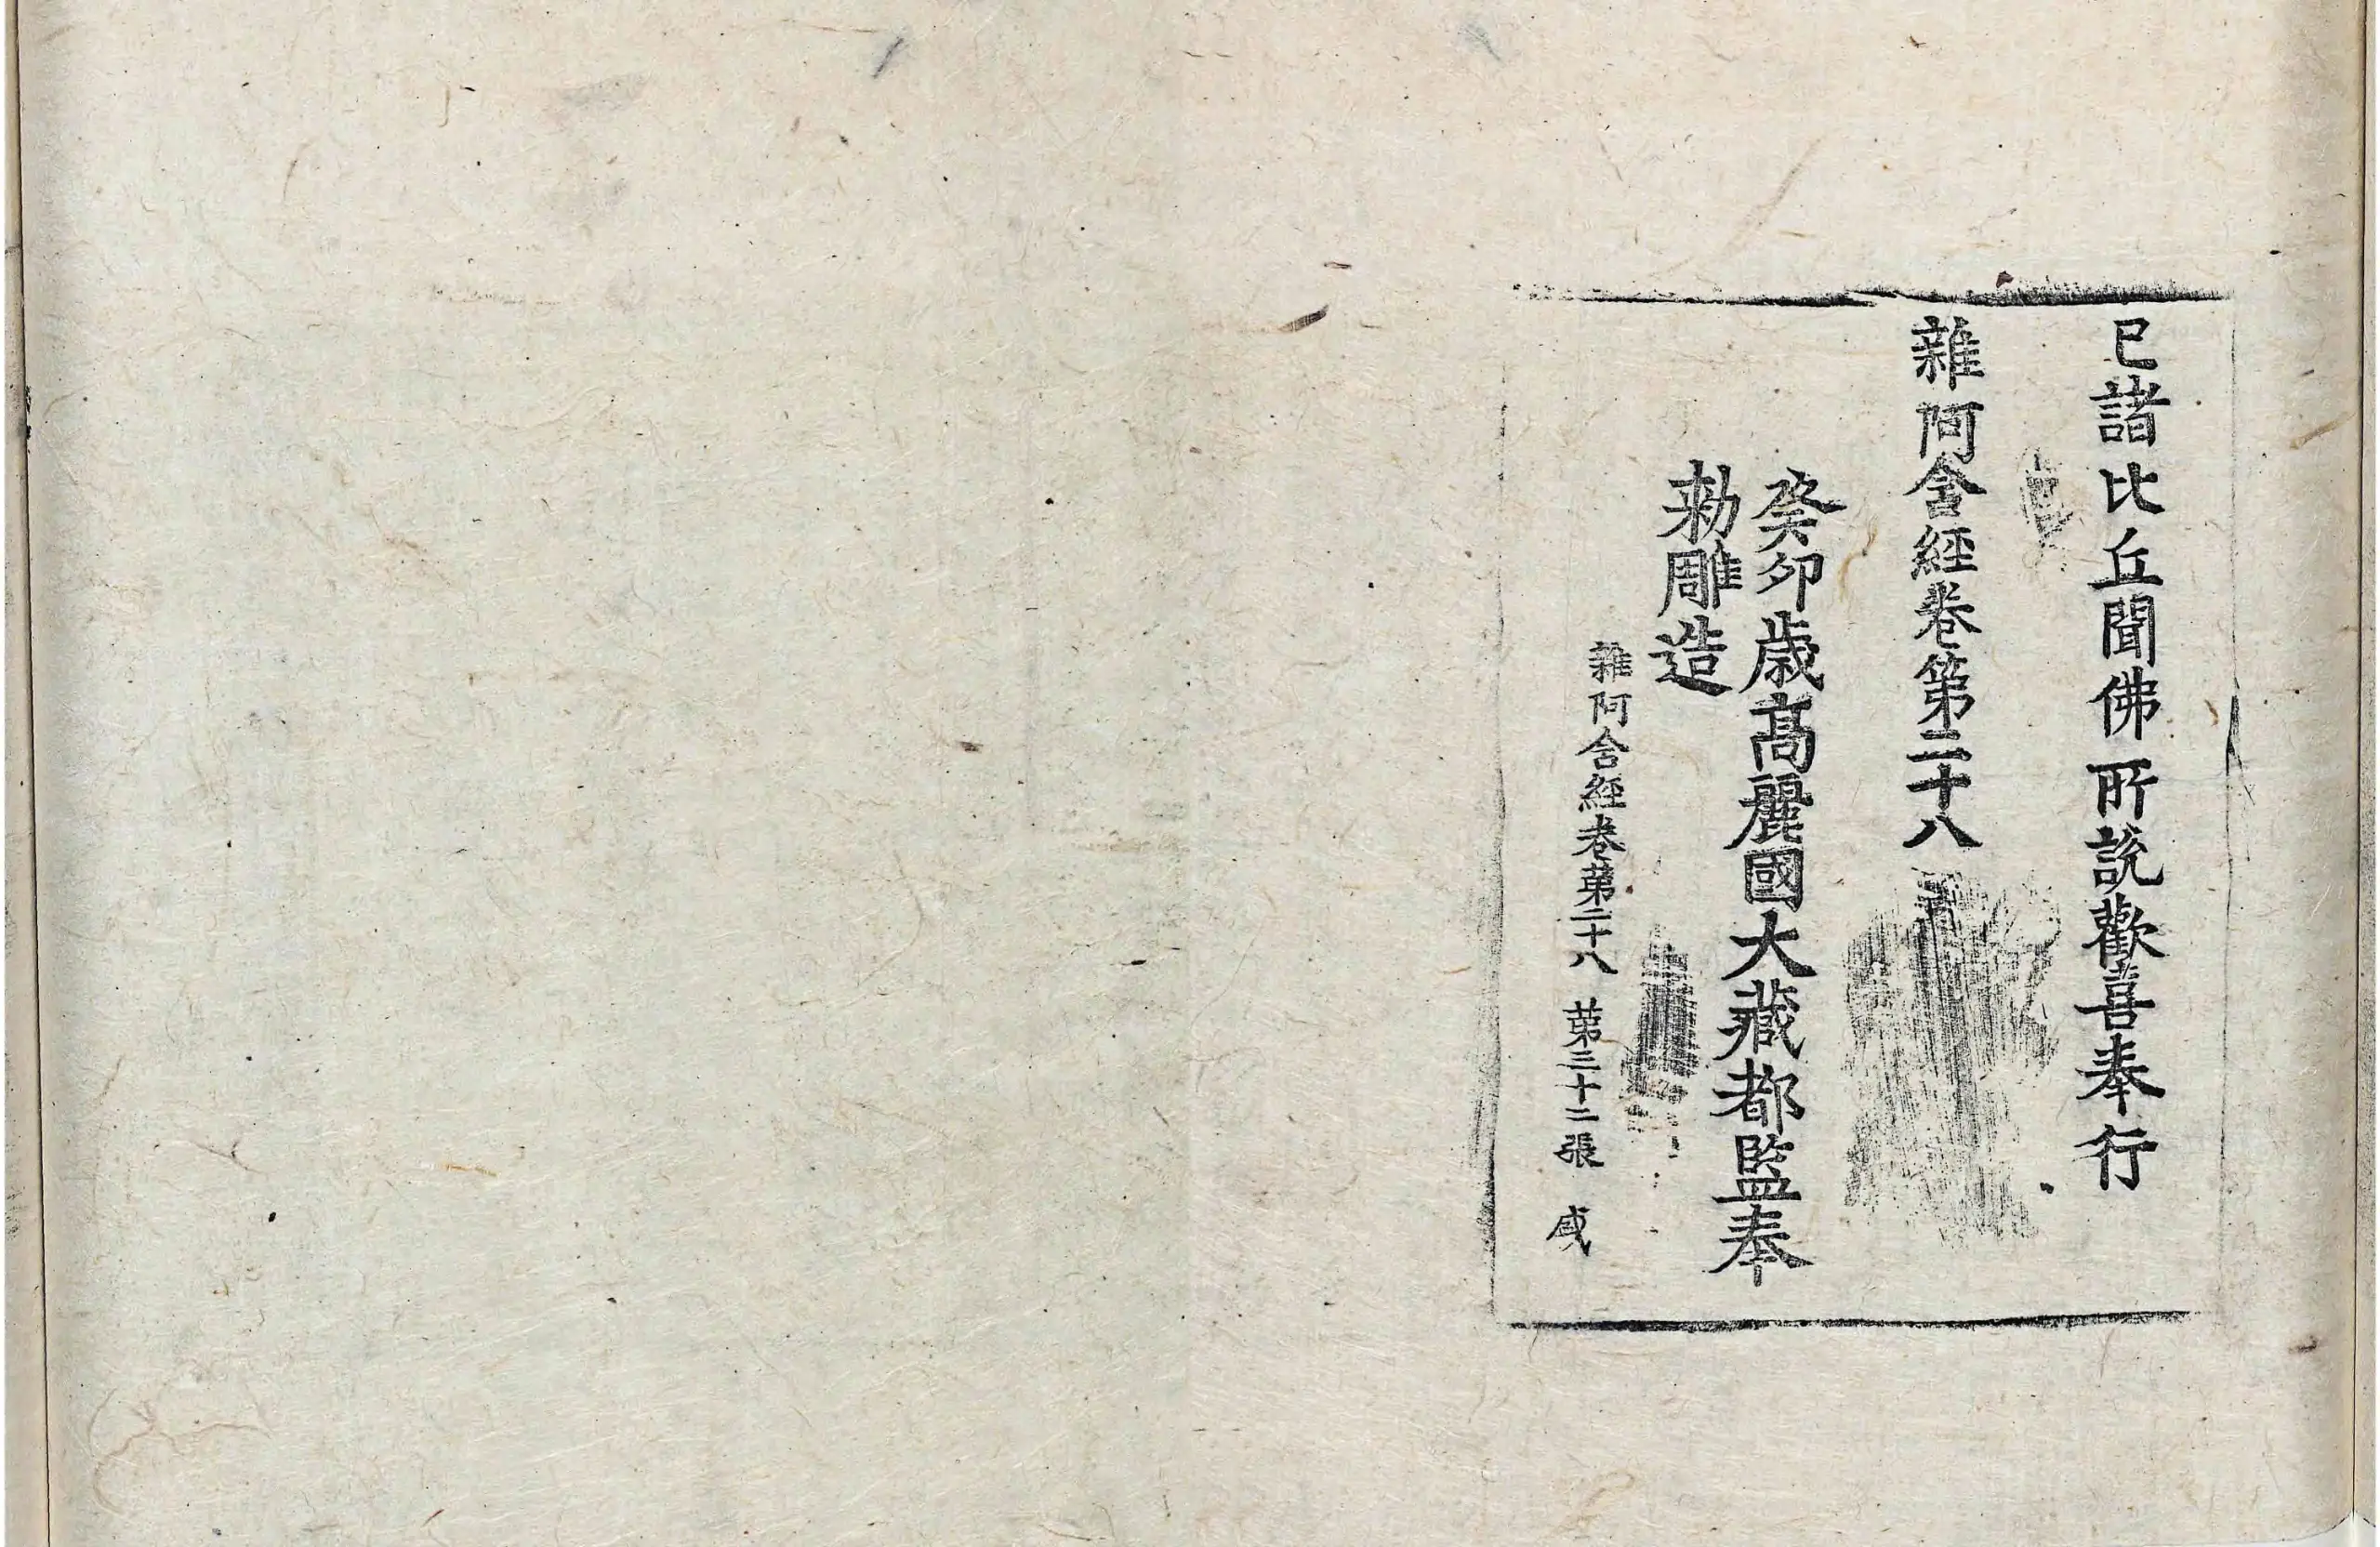 已諸比丘聞佛所說歡喜奉行
雜阿含經卷第二十八
癸卯歲高麗國大藏都監奉
勅雕造
雜阿含經卷第二十八 第三十二張